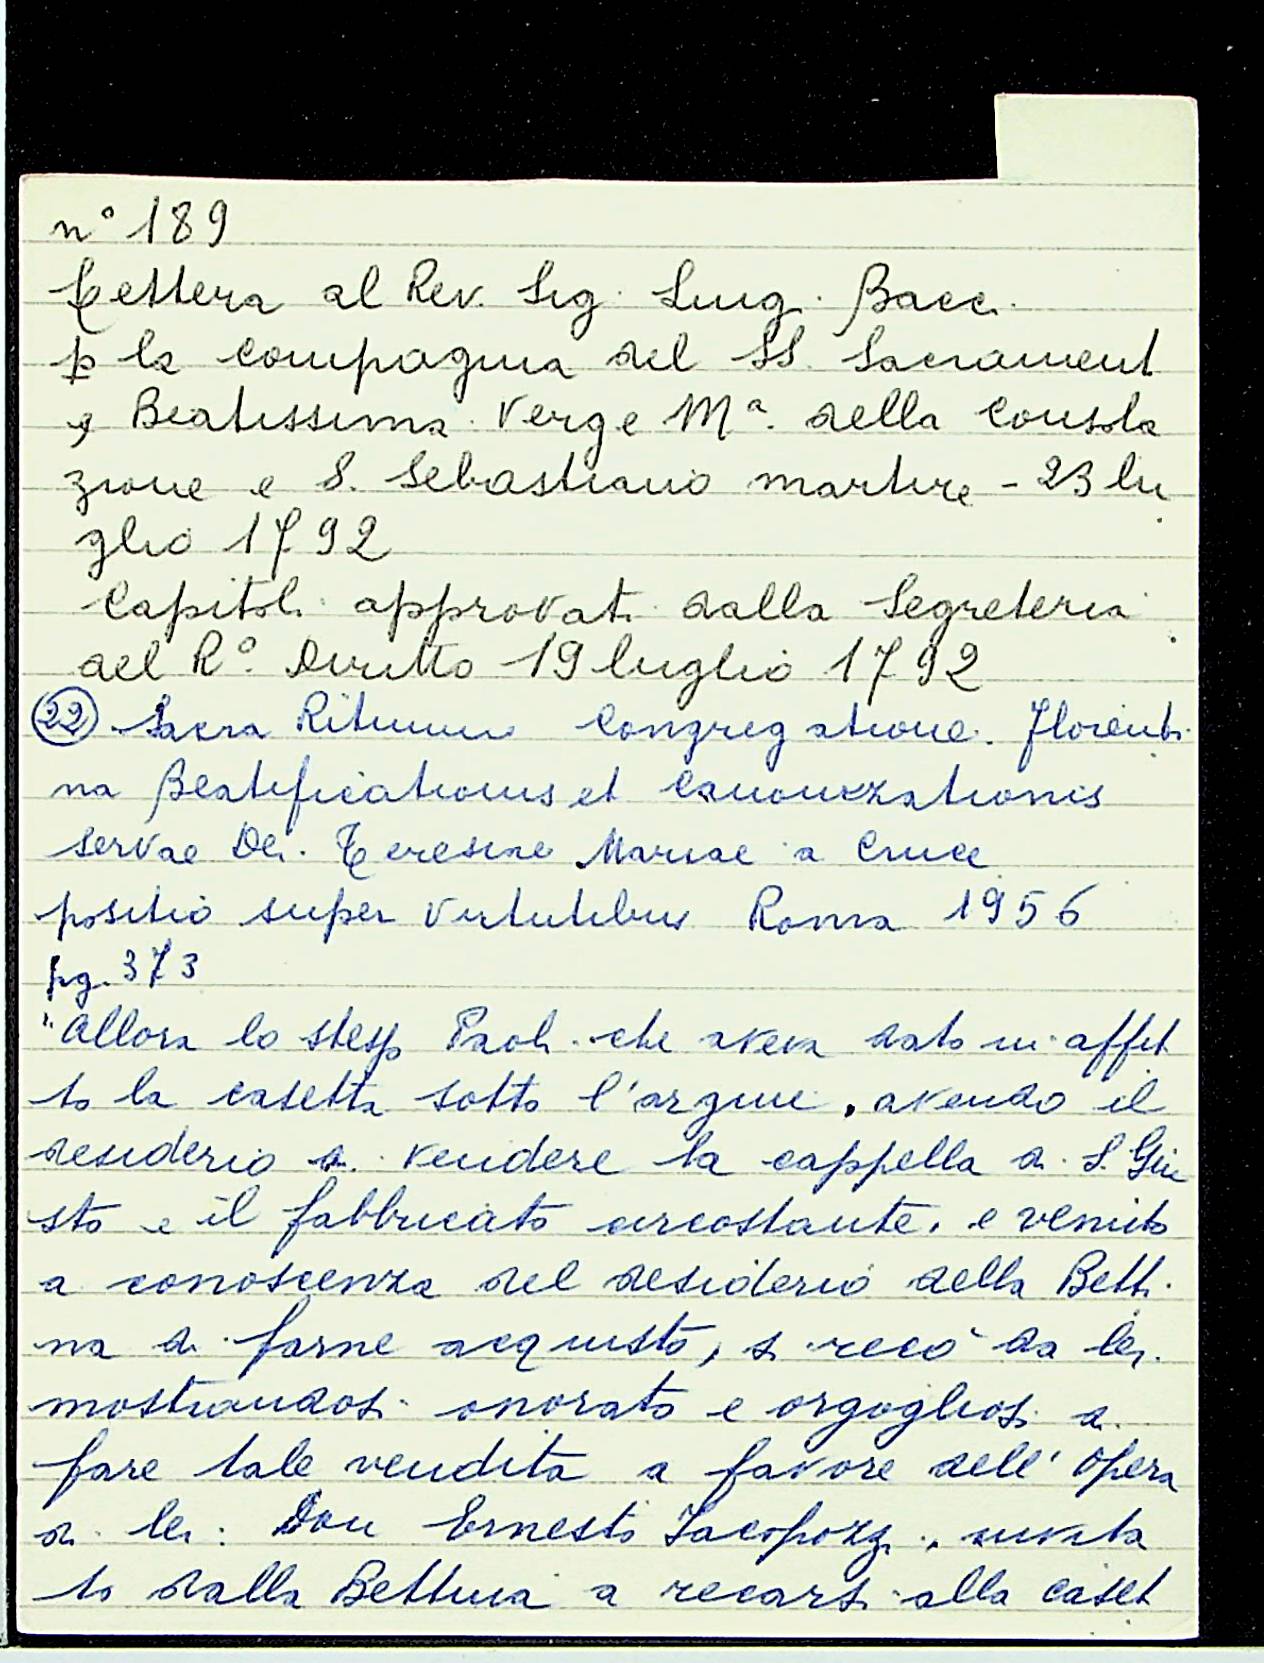 n° 189
Lettera al Rev. Sig. Luig. Bacci
p la compagnia del SS. Sacrament
e Beatissima Verge Mª. della Consola
zione e S. Sebastiano martire - 23 lu
glio 1792
Capitoli approvati dalla Segreteria
del R°. Diritto 19 luglio 1792
22 Sacra Rituum Congregatione. Florenti
na Beatificationis et Canonizzationis
servae Dei. Teresiae Mariae a Cruce
positio super virtutibus Roma 1956
pg. 373
"Allora lo stesso Paoli che aveva dato in affit
to la casetta sotto l'argine, avendo il
desiderio di vendere la cappella di S. Giu
sto e il fabbricato circostante, e venuto
a conoscenza del desiderio della Betti
na di farne acquisto, si recò da lei
mostrandosi onorato e orgoglioso di
fare tale vendita a favore dell'Opera
di lei: Don Ernesto Jacopozzi, invita
to dalla Bettina a recarsi alla caset